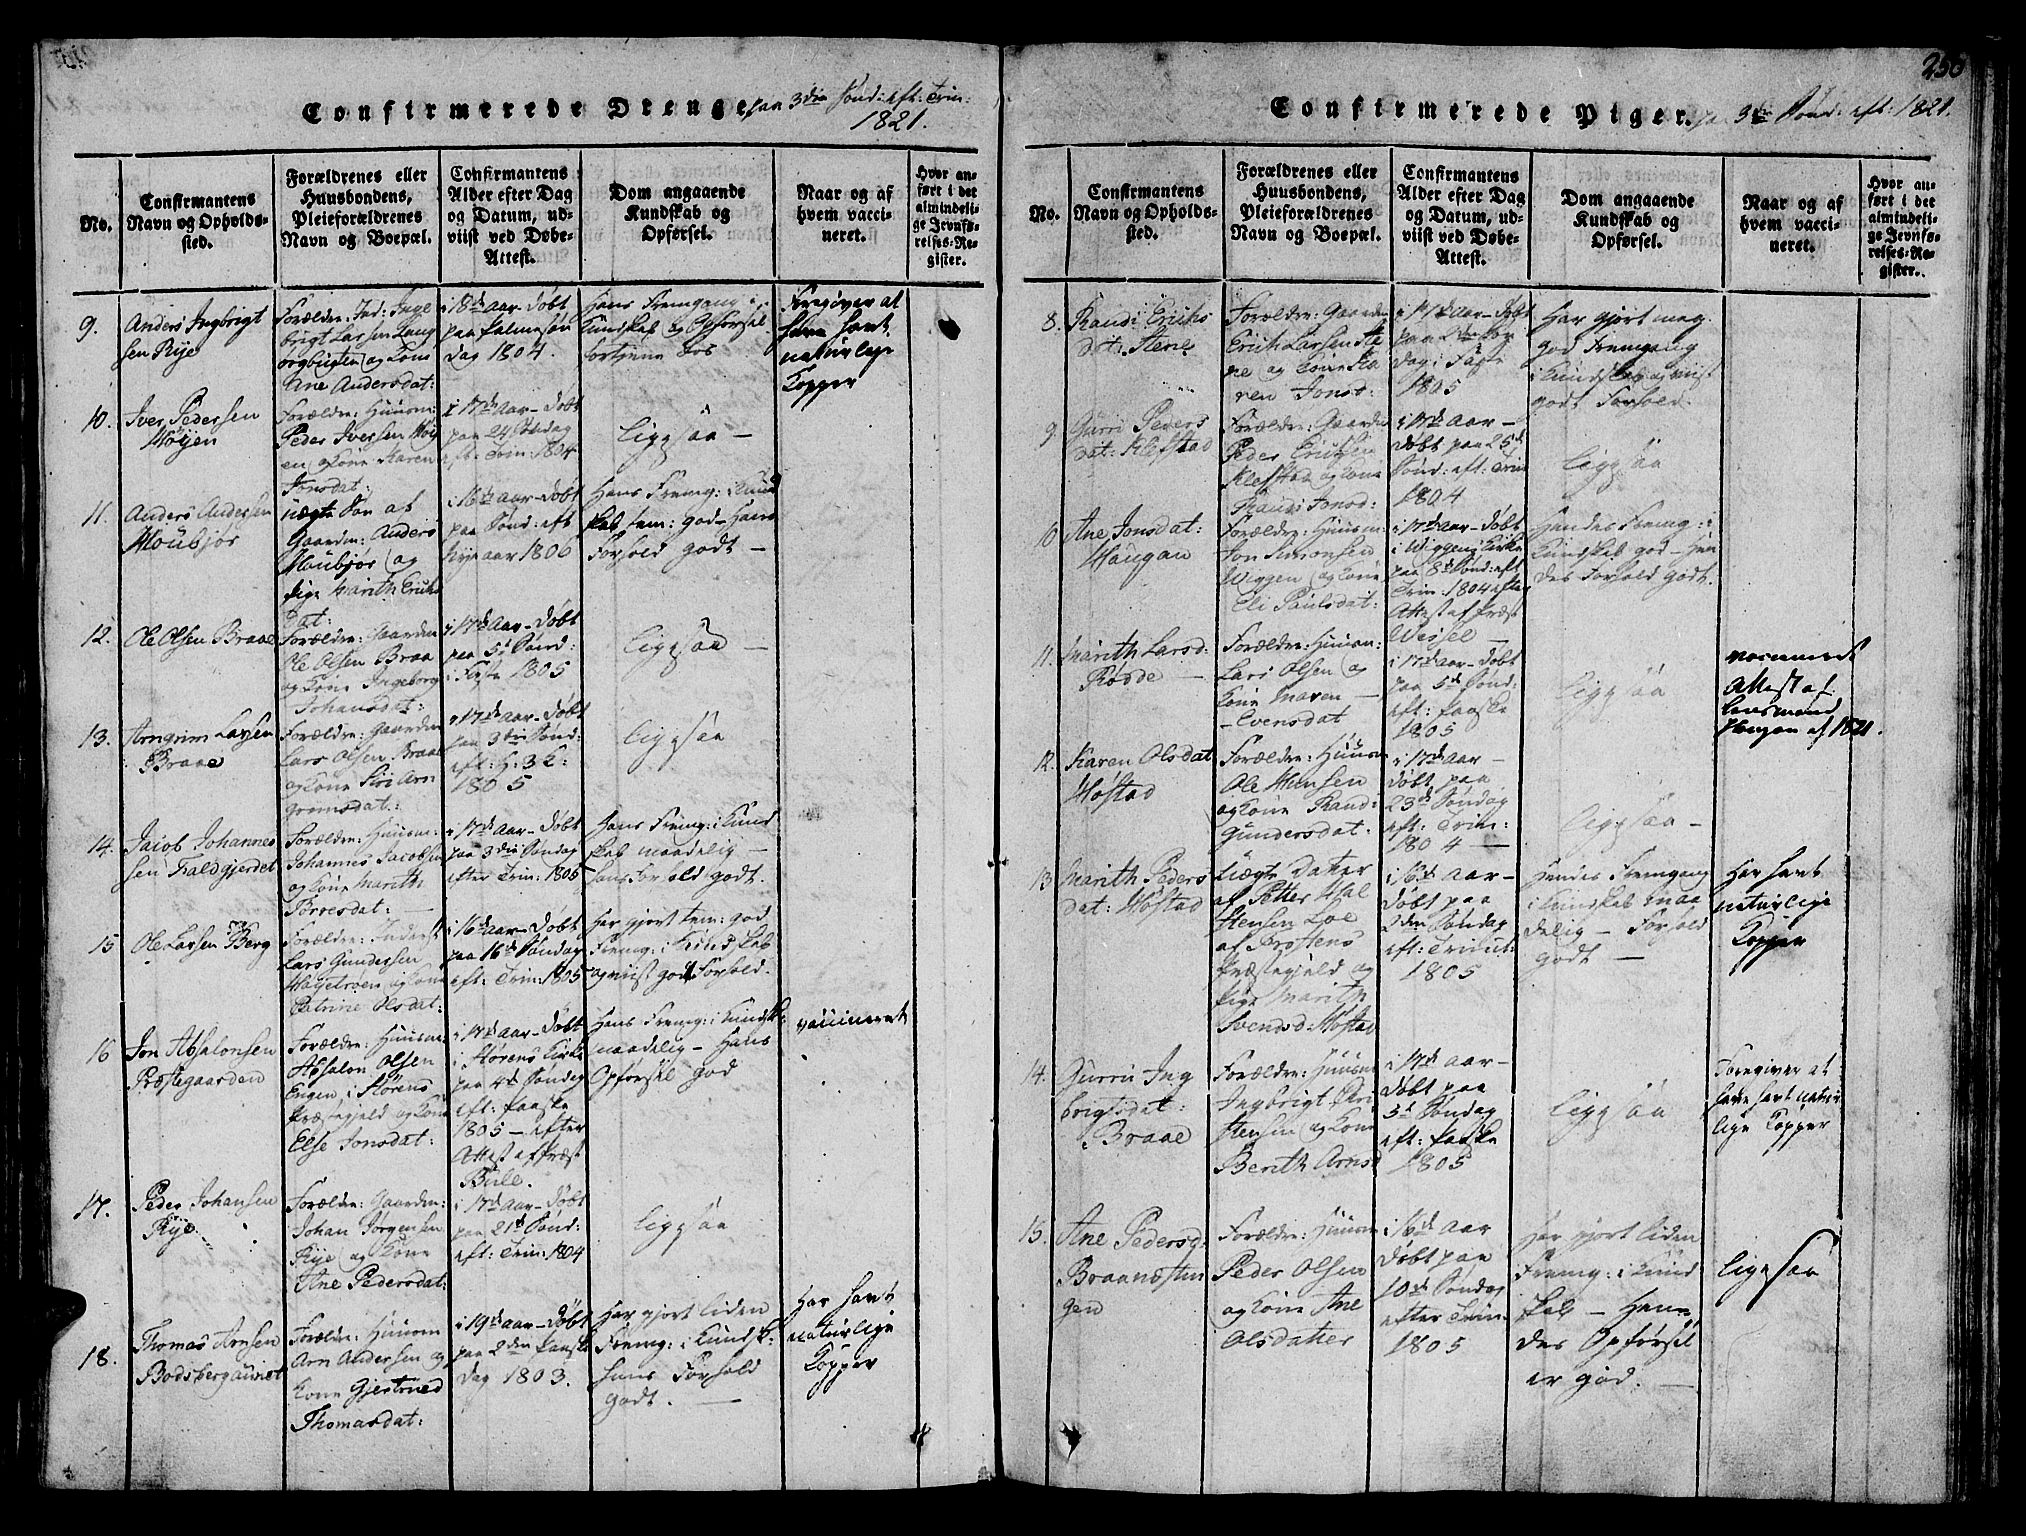 Confirmerede Drenge paa 3die Sønd: eft: Trin:
1821.
No.
Confirmantens
Navn og Opholds-
sted.
Forældrenes eller
Huusbondens,
Pleieforældrenes
Navn og Boepæl.
Confirmantens
Alder efter Dag
og Datum, ud-
viist ved Døbe-
Attest.
Dom angaaende
Kundskab og
Opførsel.
Naar og af
hvem vacci-
neret.
Hvor an-
ført i det
almindeli-
ge Jevnfø-
relses-Re-
gister.
9.
Anders Ingbrigt
sen Rye
Forældre: Ind: Inge
brigt Larsen
og Kone
Ane Andersdat:
i 18de Aar Døbt
paa Palmesøn
dag 1804.
Hans Fremgang i
Kundskab og Opførsel
Foregiver at
have havt
naturlige
Kopper
10.
Iver Pedersen
Møyen
Forældre: Huusm:
Peder Iversen Møy
en og Kone Karen
Jonsdat:
i 17de Aar – Døbt
paa 24 Søndag
eft: Trin: 1804
ligesaa –
11.
Anders Andersen
Moubjør
uægte Søn af
Gaardm: Anders
Moubjør og
Pige Marith Erichs
dat:
i 16de Aar – Døbt
paa Sønd: eft
Nyeaar 1806
Hans Fremg: i Kund
skab tem: god – Hans
Forhold godt –
12.
Ole Olsen Braae
Forældre: Gaardm
Ole Olsen Braa
og Kone Ingeborg
Johansdat:
i 17de Aar – Døbt
paa 5te Sønd:
i Faste 1805
ligesaa –
13.
Arngrim Larsen
Braae
Forældre: Gaardm
Lars Olsen Braae
og Kone Siri Arn
gromsdat:
i 17de Aar – Døbt
paa 3die Sønd:
eft: H: 3 K:
1805
ligesaa
14.
Jacob Johannes
sen Faldgjerdet
Forældre: Huusm:
Johannes Jacobsen
og Kone Marith
Torresdat:
i 17de Aar – Døbt
paa 3die Søndag
efter Trin: 1805
Hans Fremg: i Kund
skab maadelig –
hans Forhold godt.
15
Ole Larsen Berg
Forældre: Inderst
Lars Gundersen
Møyetrøen og Kone
Catrine Olsdat:
i 16de Aar – Døbt
paa 16de Søndag
eft: Trin: 1805
Har gjort tem: god
Fremg: i Kundskab
og viist godt Forhold.
16
Jon Absalonsen
Præstegaarden
Forældre: Huusm:
Absalon Olsen
Engen i Størens
Præstegjeld og Kone
Else Jonsdat:
i 17de Aar – Døbt
i Størens Kirke
paa 4de Søndag
eft: Paaske
1805 – efter
Attest af Præst
Bule.
Hans Fremg: i Kundsk:
maadelig – Hans
Opførsel god
vaccineret
17.
Peder Johansen
Rye
Forældre: Gaardm:
Johan Jørgensen
Rye og Kone
Ane Pedersdat:
i 17de Aar – Døbt
paa 21de Sønd:
eft: Trin: 1804
ligesaa
18.
Thomas Arnsen
Bodsbergaunet
Forældre: Huusm
Arn Andersen og
Kone Gjertrued
Thomasdat:
i 19de Aar – Døbt
paa 2den Paaske
dag 1803.
Har gjort liden
Fremg: i Kundsk:
hans Forhold
godt. –
Har havt
naturlige
Kopper
250
Confirmerede Piger. paa 3die Sønd: eft: 1821.
No.
Confirmantens
Navn og Opholds-
sted.
Forældrenes eller
Huusbondens,
Pleieforældrenes
Navn og Boepæl.
Confirmantens
Alder efter Dag
og Datum, ud-
viist ved Døbe-
Attest.
Dom angaaende
Kundskab og
Opførsel.
Naar og af
hvem vacci-
neret.
Hvor an-
ført i det
almindeli-
ge Jevnfø-
relses-Re-
gister.
8.
Randi Erichs
dat: Stene
Forældre: Gaardm
Erich Larsen Ste
ne og Kone Ka
ren Jonsd:
i 17de Aar – Døbt
paa 2den Søn
dag i Faste
1805
Har gjort meg.
god Fremgang
i Kundskab og viist
godt Forhold.
9
Gurri Peders
dat: Klefstad
Forældre: Gaardm
Peder Erichsen
Klefstad og Kone
Randi Jonsd:
i 17de Aar –
Døbt paa 25de
Sønd: eft: Trin
1804
ligesaa
10
Ane Jonsdat:
Haugan
Forældre: Huusm:
Jon Simonsen
Wiggen og Kone
Eli Paulsdat:
i 17de Aar – Døbt
i Wiggens Kirke
paa 8de Sønd: eft
Trin: 1804 efter
Attest af Præst
Wessel –
Hendes Fremg: i
Kundskab god – Hen
des Forhold godt.
11.
Marith Larsd:
Røsde –
Forældre: Huusm:
Lars Olsen og
Kone Maren –
Evensdat
i 17de Aar – Døbt
paa 5de Sønd:
eft: Paaske
1805
ligesaa
vaccineret
Attest af
Lensmand
Haugan af 1821.
12.
Karen Olsdat
Høstad
Forældre: Huusm
Ole Hansen
og Kone Rand:
Gundersdat:
i 17de Aar –
Døbt paa
23de Søndag
eft: Trin:
1804 –
ligesaa –
13
Marith Peders
dat: Høstad
Uægte Datter
af Petter Hal
stensen Loe
af Brostens
Præstegjeld og
Pige Marith
Svendsd: Høstad
i 16de Aar –
Døbt paa
2den Søndag
eft: Trinit:
1805
Hendes Fremgang
i Kundskab maa
delig – Forhold
godt –
Har havt
naturlige
Kopper
14.
Gurru Ing
brigtsdat:
Braae
Forældre: Huusm
Ingbrigt Chri
stensen og Kone
Berith Arnsd
i 17de Aar –
Døbt paa
5te Søndag
eft: Paaske
1805
ligesaa
Foregiver at
have havt natur
lige Kopper
15.
Ane Pedersd:
Braaenøsten
gen
Forældre: Huusm
Peder Olsen
og Kone Ane
Olsdatter
i 16de Aar
Døbt paa
10de Søndag
efter Trin:
1805
Har gjort liden
Fremg: i Kund
skab – Hen
des Opførsel
er god. –
ligesaa